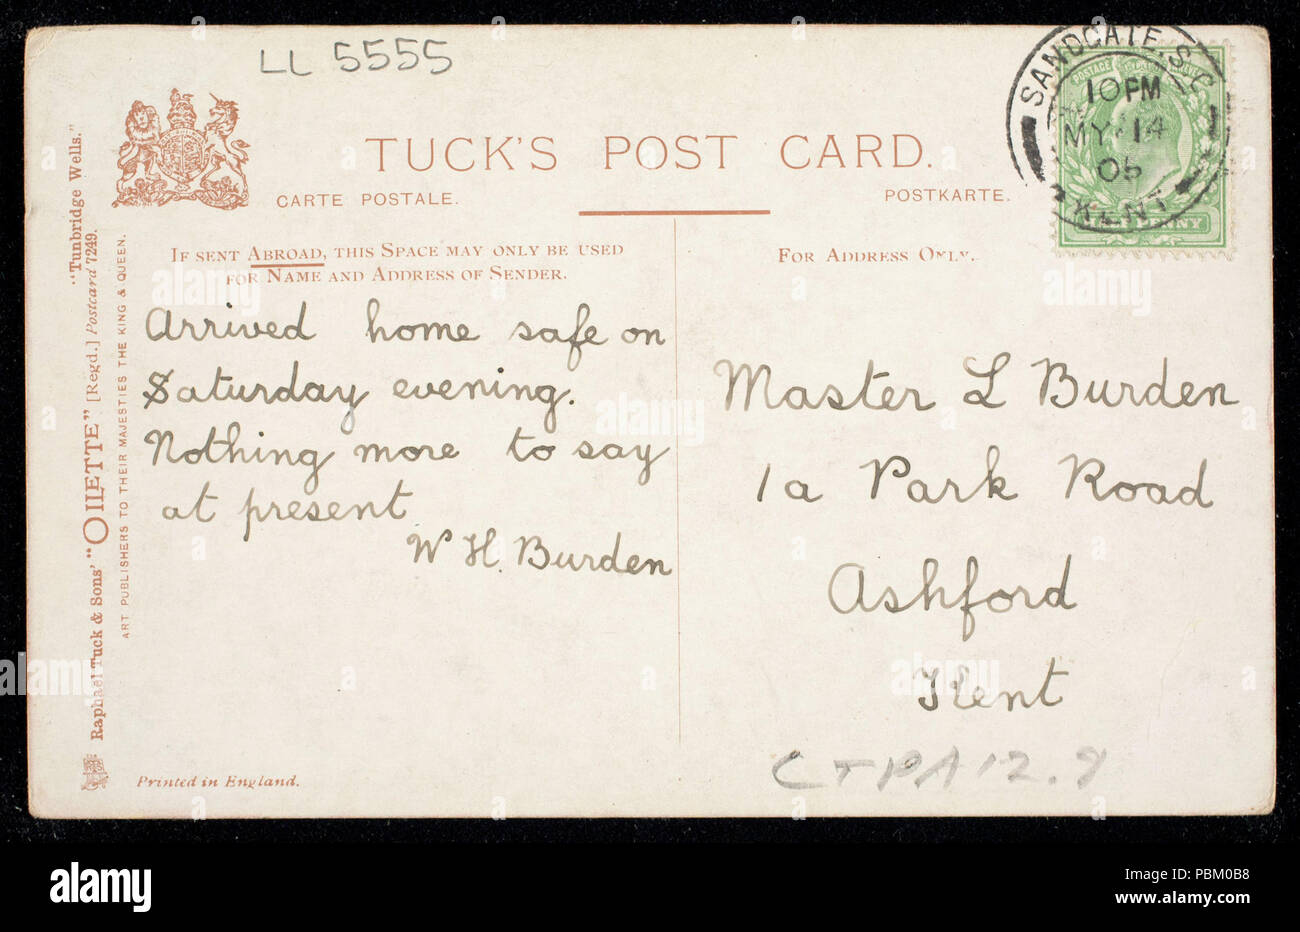 LL 5555
TUCK'S POST CARD.
CARTE POSTALE.
POSTKARTE.
SANDGATE. S.O.
10 PM
MY 14
05
KENT
HALFPENNY
IF SENT ABROAD, THIS SPACE MAY ONLY BE USED
FOR NAME AND ADDRESS OF SENDER.
FOR ADDRESS ONLY.
Arrived home safe on
Saturday evening.
Nothing more to say
at present
W H. Burden
Master L Burden
1a Park Road
Ashford
Kent
C T P A 12.9
Raphael Tuck & Sons' "OILETTE" [Regd.] Postcard 7249.
"Tunbridge Wells."
ART PUBLISHERS TO THEIR MAJESTIES THE KING & QUEEN.
Printed in England.
a alamy stock photo
alamy
Image ID: PBM0B8
www.alamy.com